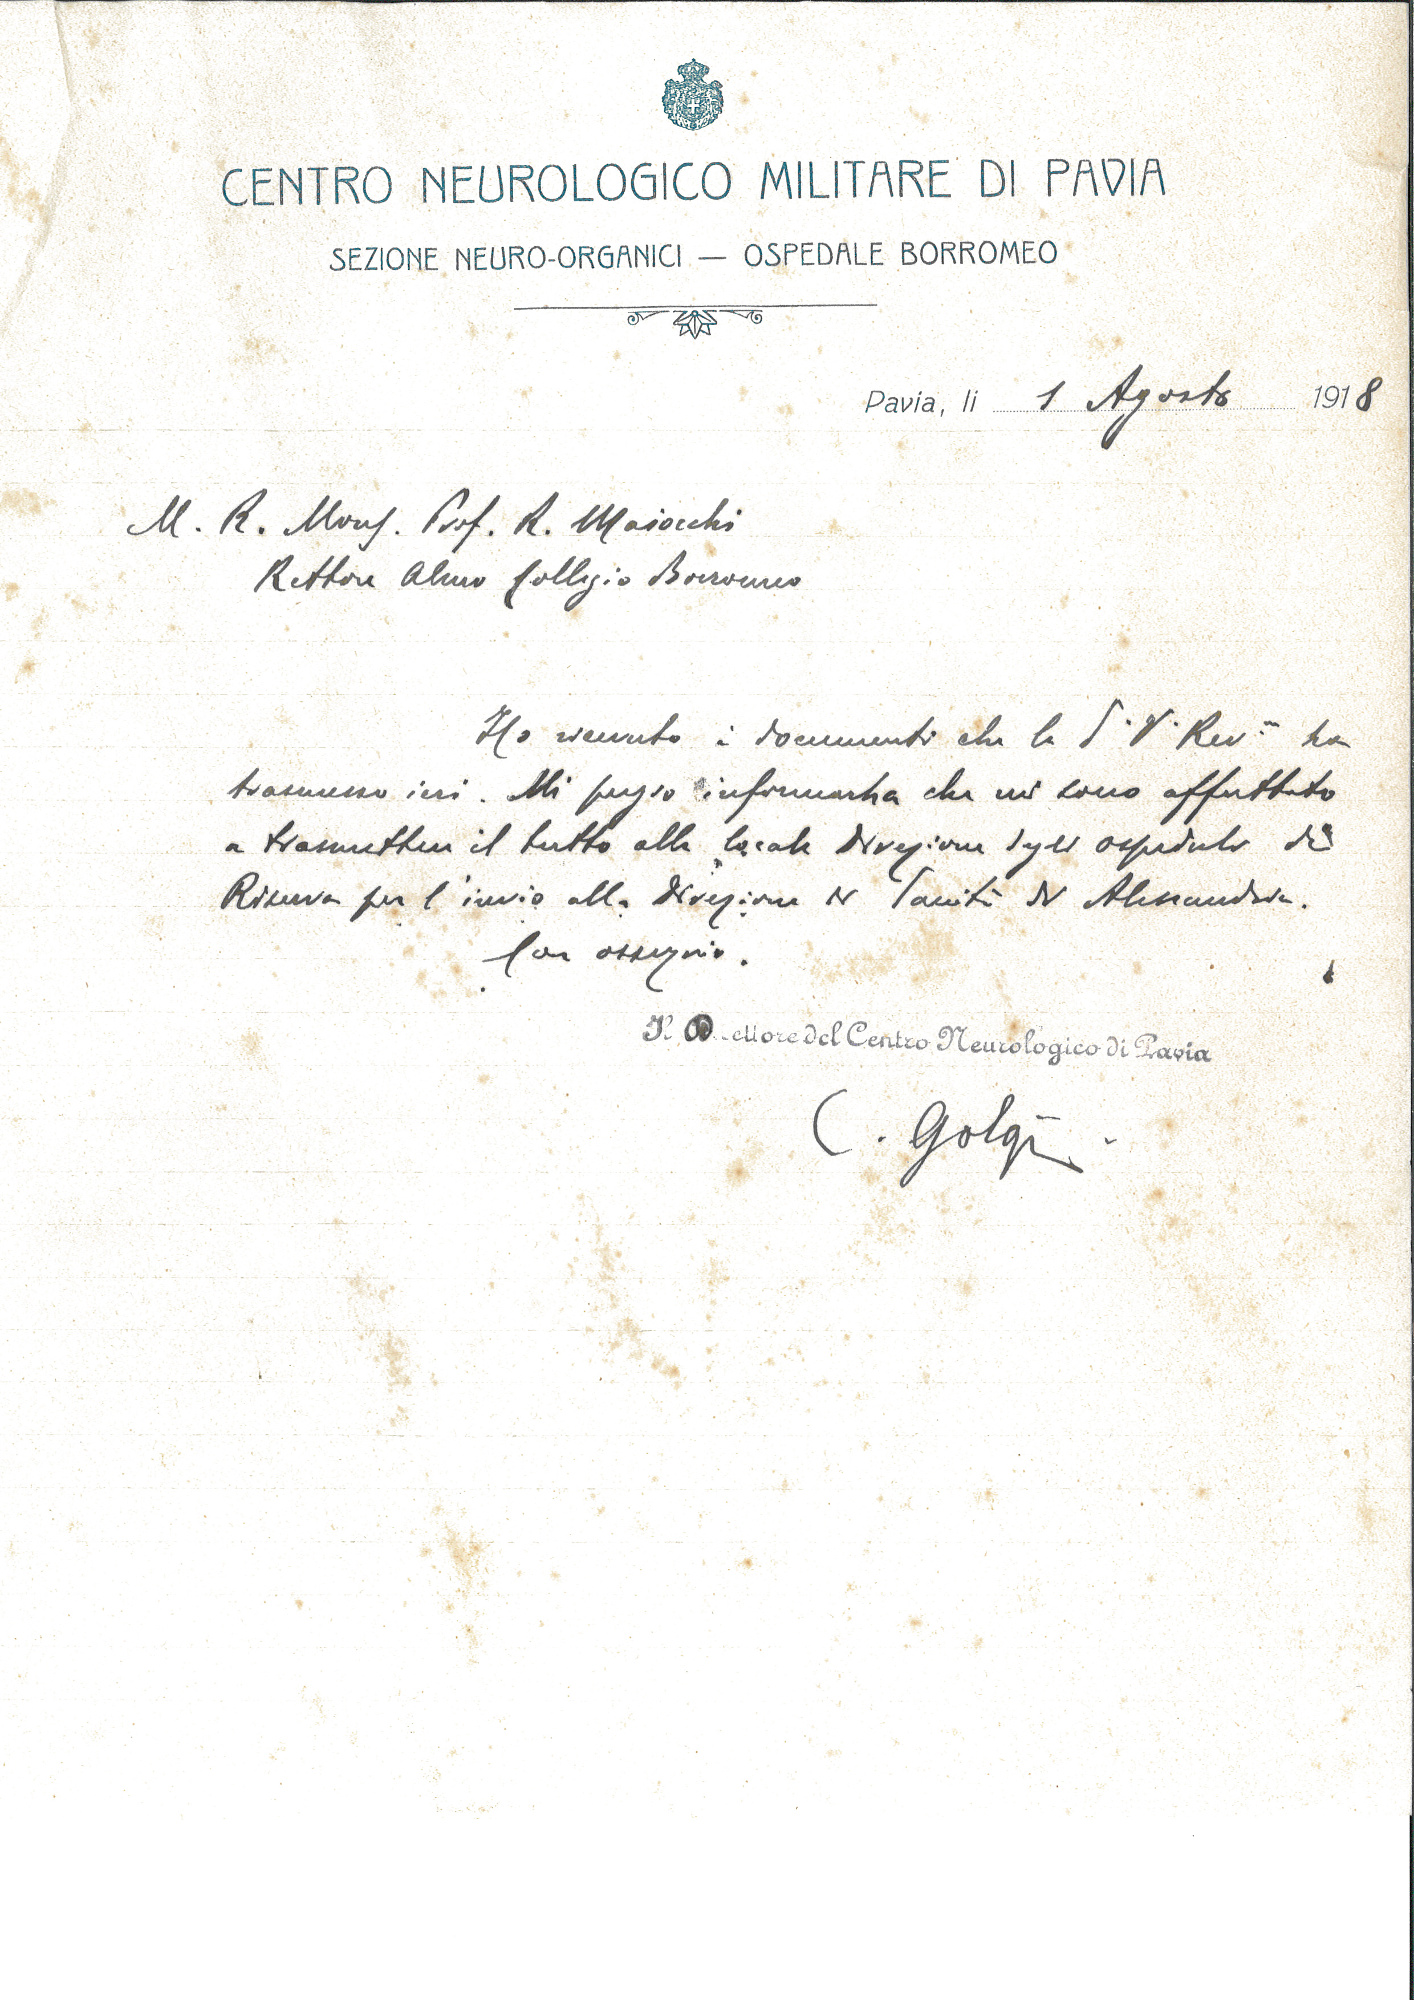 CENTRO NEUROLOGICO MILITARE DI PAVIA
SEZIONE NEURO-ORGANICI — OSPEDALE BORROMEO
Pavia, li 1 Agosto 1918
M. R. Mons. Prof. R. Maiocchi
Rettore Almo Collegio Borromeo
Ho ricevuto i documenti che la S. V. Rev.ma ha
trasmesso ieri. Mi pregio informarla che mi sono affrettato
a trasmettere il tutto alla locale Direzione degli ospedali di
Riserva per l'invio alla Direzione di Sanità di Alessandria.
Con ossequio.
Il Direttore del Centro Neurologico di Pavia
C. Golgi